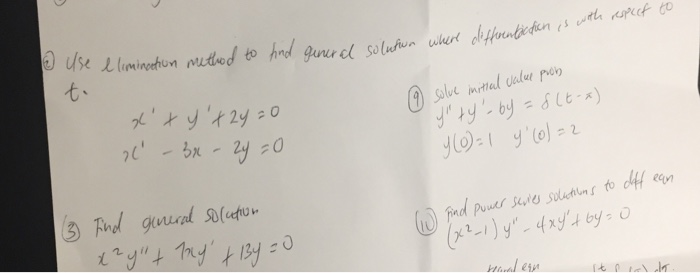 ② Use elimination method to find general solution where differentiation is with respect to
t.
x' + y' + 2y = 0
x' - 3x - 2y = 0
③ Find general solution
x²y'' + 7xy' + 13y = 0
⑨ solve initial value prob
y'' + y' - 6y = δ(t-x)
y(0)=1 y'(0)=2
⑩ Find power series solutions to diff eqn
(x²-1)y'' - 4xy' + 6y = 0